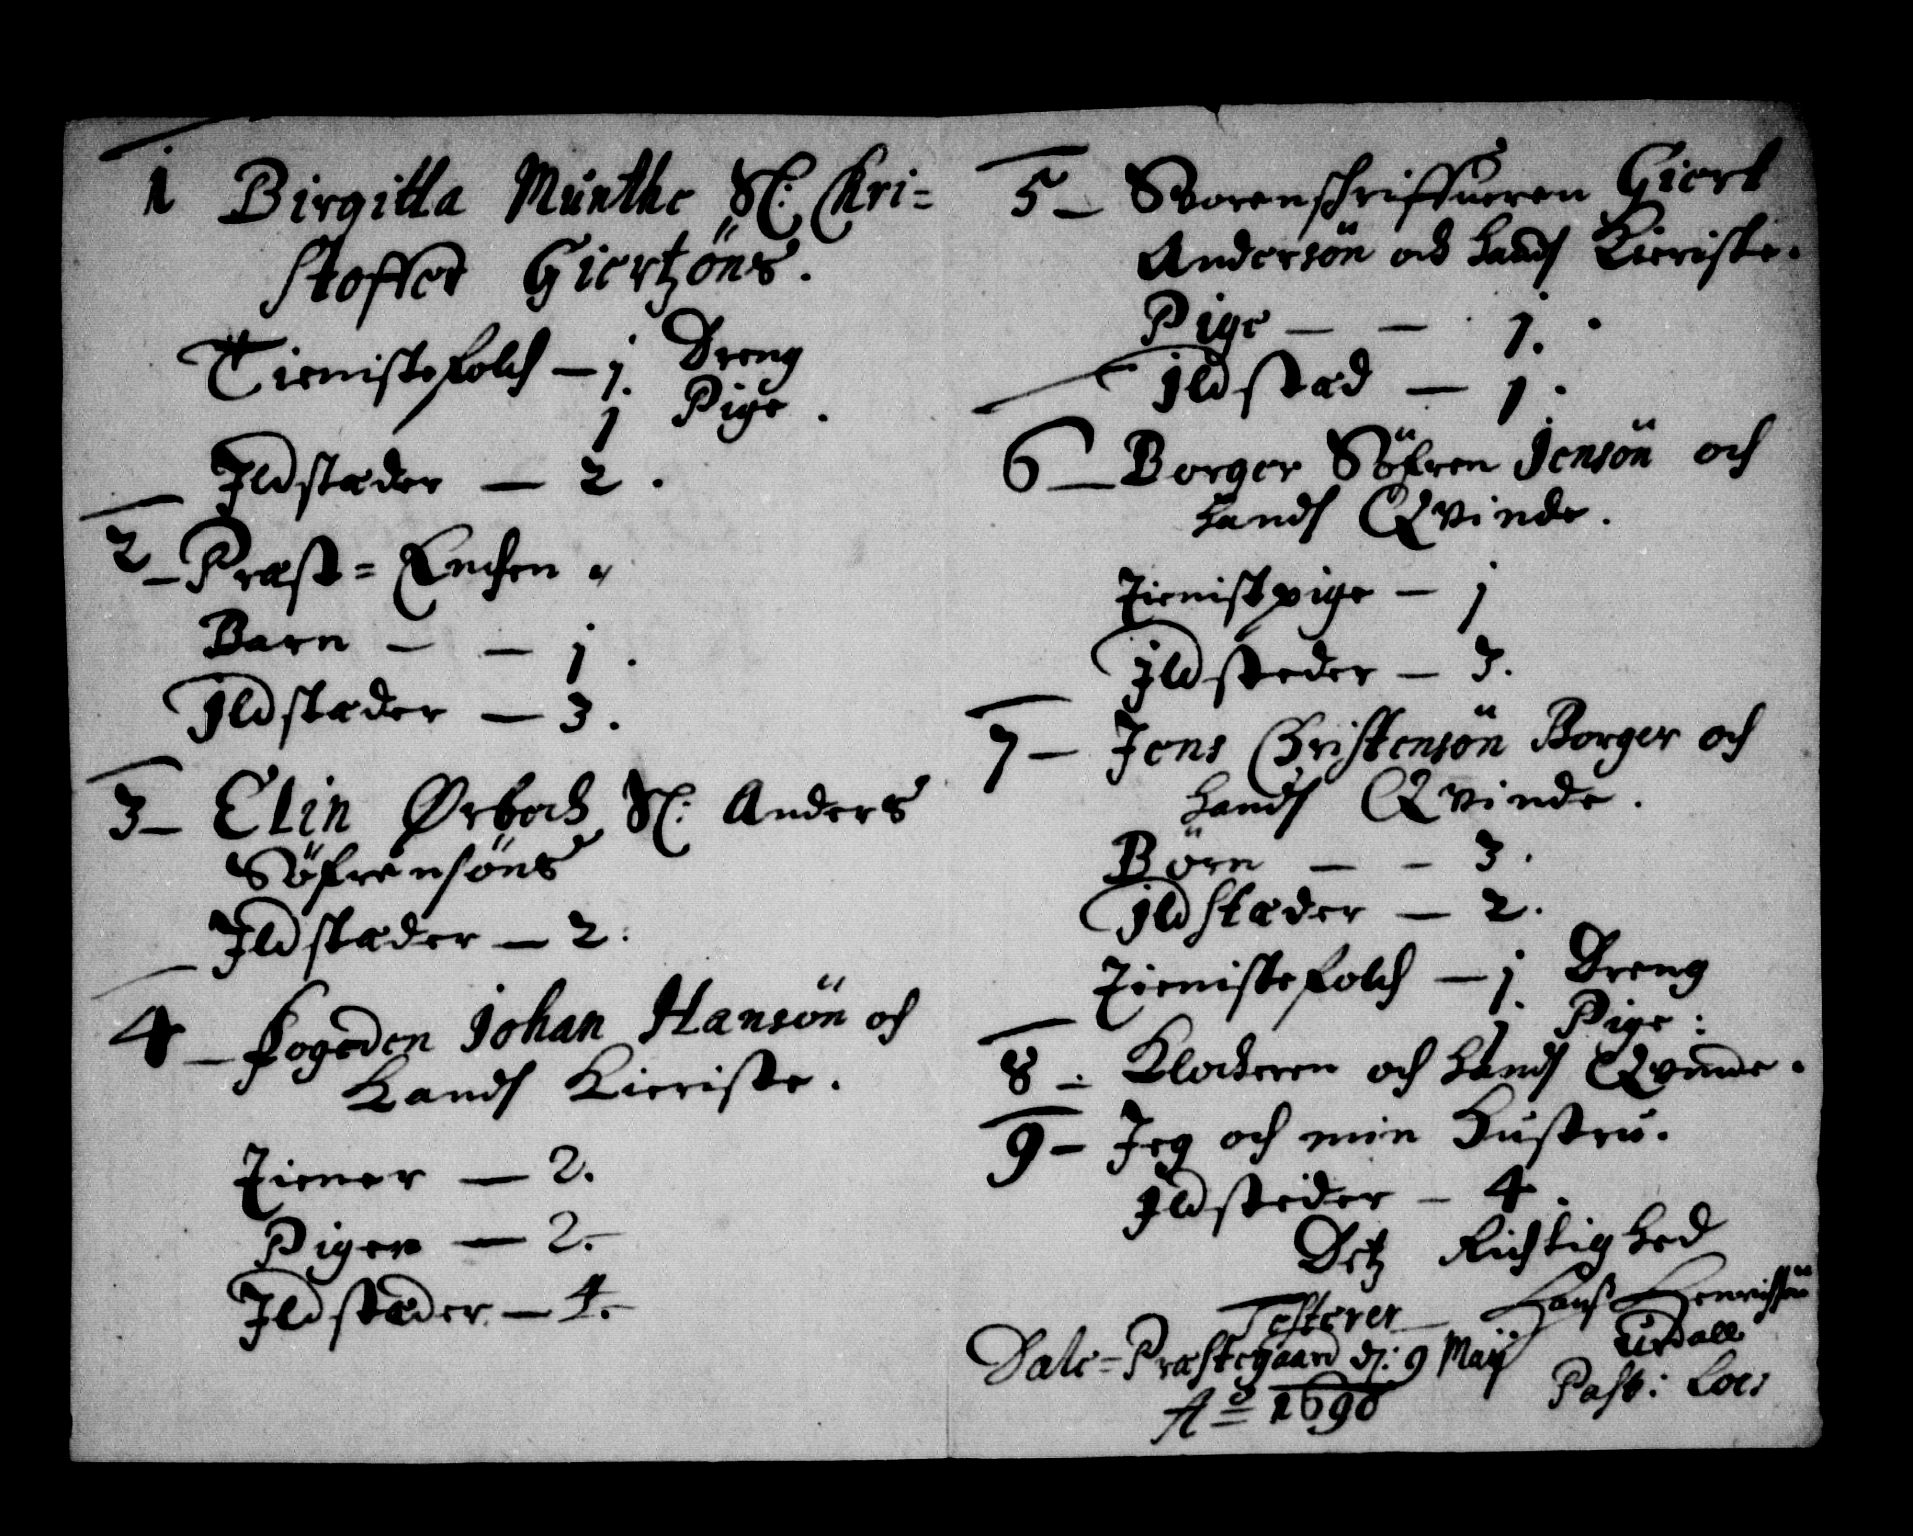 1 Birgitta Münthe Sl: Chri=
stoffer Giertzöns.
Tienistefolch – 1. Dreng
1 Pige.
Ildstæder – 2.
2 – Præst = Enchen.
Barn – – 1.
Ildstæder – 3.
3 – Elin Ørbech Sl: Anders
Söfrensöns
Ildstæder – 2.
4 – Fogeden Johan Hansön och
Hands Kieriste.
Tiener – 2.
Piger – 2.
Ildstæder – 4.
5 – Svorenschriffueren Giert
Andersön och hands Kieriste.
Pige – – 1.
Ildstæd – 1.
6 – Borger Söfren Jensön och
hands Qvinde.
Tienistpige – 1
Ildsteder – 3.
7 – Jens Christensön Borger och
hands Qvinde.
Börn – – 3.
Ildstæder – 2.
Tienistefolch – 1. Dreng
1 Pige:
8 – Klockeren och hands Qvinde.
9 – Jeg och min Hustru.
Ildsteder – 4.
Detz Richtighed
Testerer Hans Henrichsön
Dale = Præstegaard d: 9 Maij Urdall
Ao 1690 Past: Loci